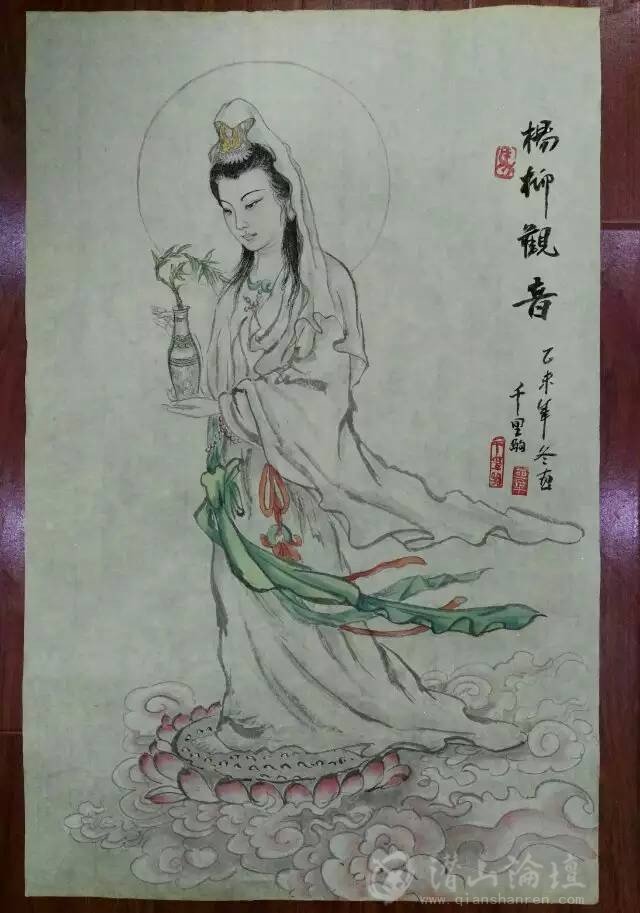 楊柳觀音
乙未年冬在
千里駒
潜山論壇
www.qianshanren.com